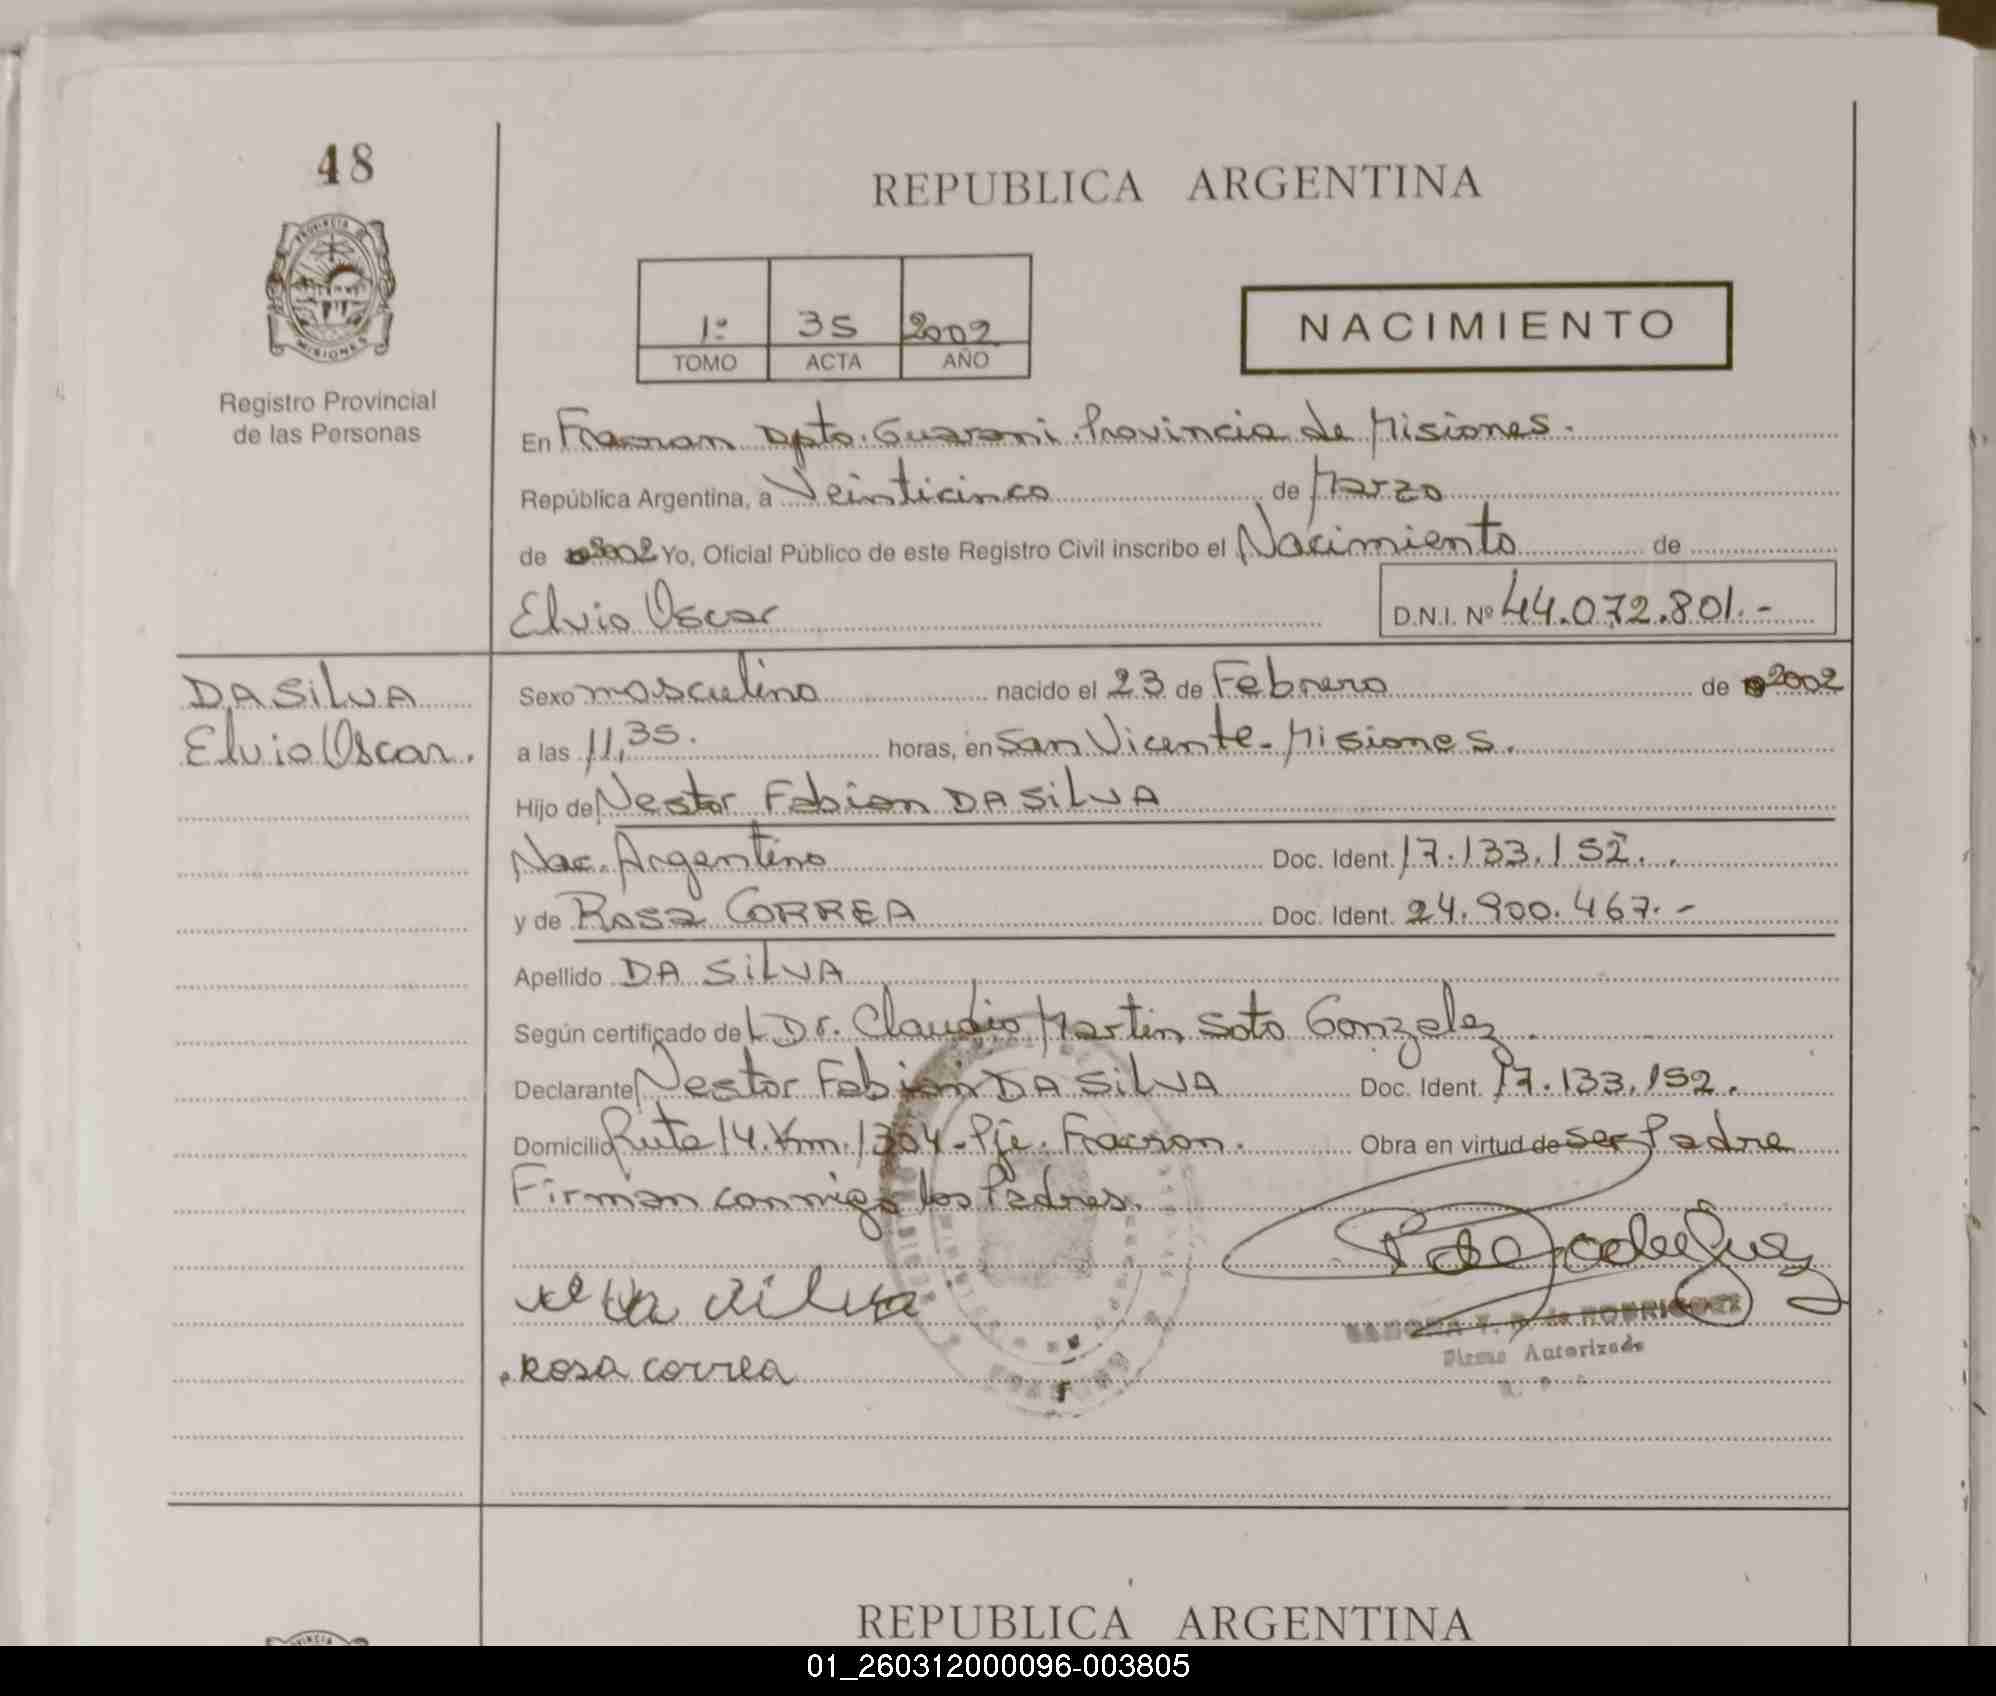 48
REPUBLICA ARGENTINA
PROVINCIA DE
MISIONES
1º 35 2002
TOMO ACTA AÑO
NACIMIENTO
Registro Provincial
de las Personas
En Fracran Dpto. Guarani. Provincia de Misiones.
República Argentina, a Veinticinco de Marzo
de 2002 Yo, Oficial Público de este Registro Civil inscribo el Nacimiento de
Elvio Oscar D.N.I. Nº 44.072.801.-
DA SILVA
Elvio Oscar.
Sexo masculino nacido el 23 de Febrero de 2002
a las 11,35. horas, en San Vicente - Misiones.
Hijo de Nestor Fabian DA SILVA
Nac. Argentino Doc. Ident. 17.133.152.
y de Rosa CORREA Doc. Ident. 24.900.467.-
Apellido DA SILVA
Según certificado del Dr. Claudio Martin Soto Gonzalez.
Declarante Nestor Fabian DA SILVA Doc. Ident. 17.133.152.
Domicilio Ruta 14. Km. 1304 - Pje. Fracran. Obra en virtud de ser Padre
Firman conmigo los Padres.
da Silva
Rosa correa
de RODRIGUEZ
Firma Autorizada
REPUBLICA ARGENTINA
01_260312000096-003805